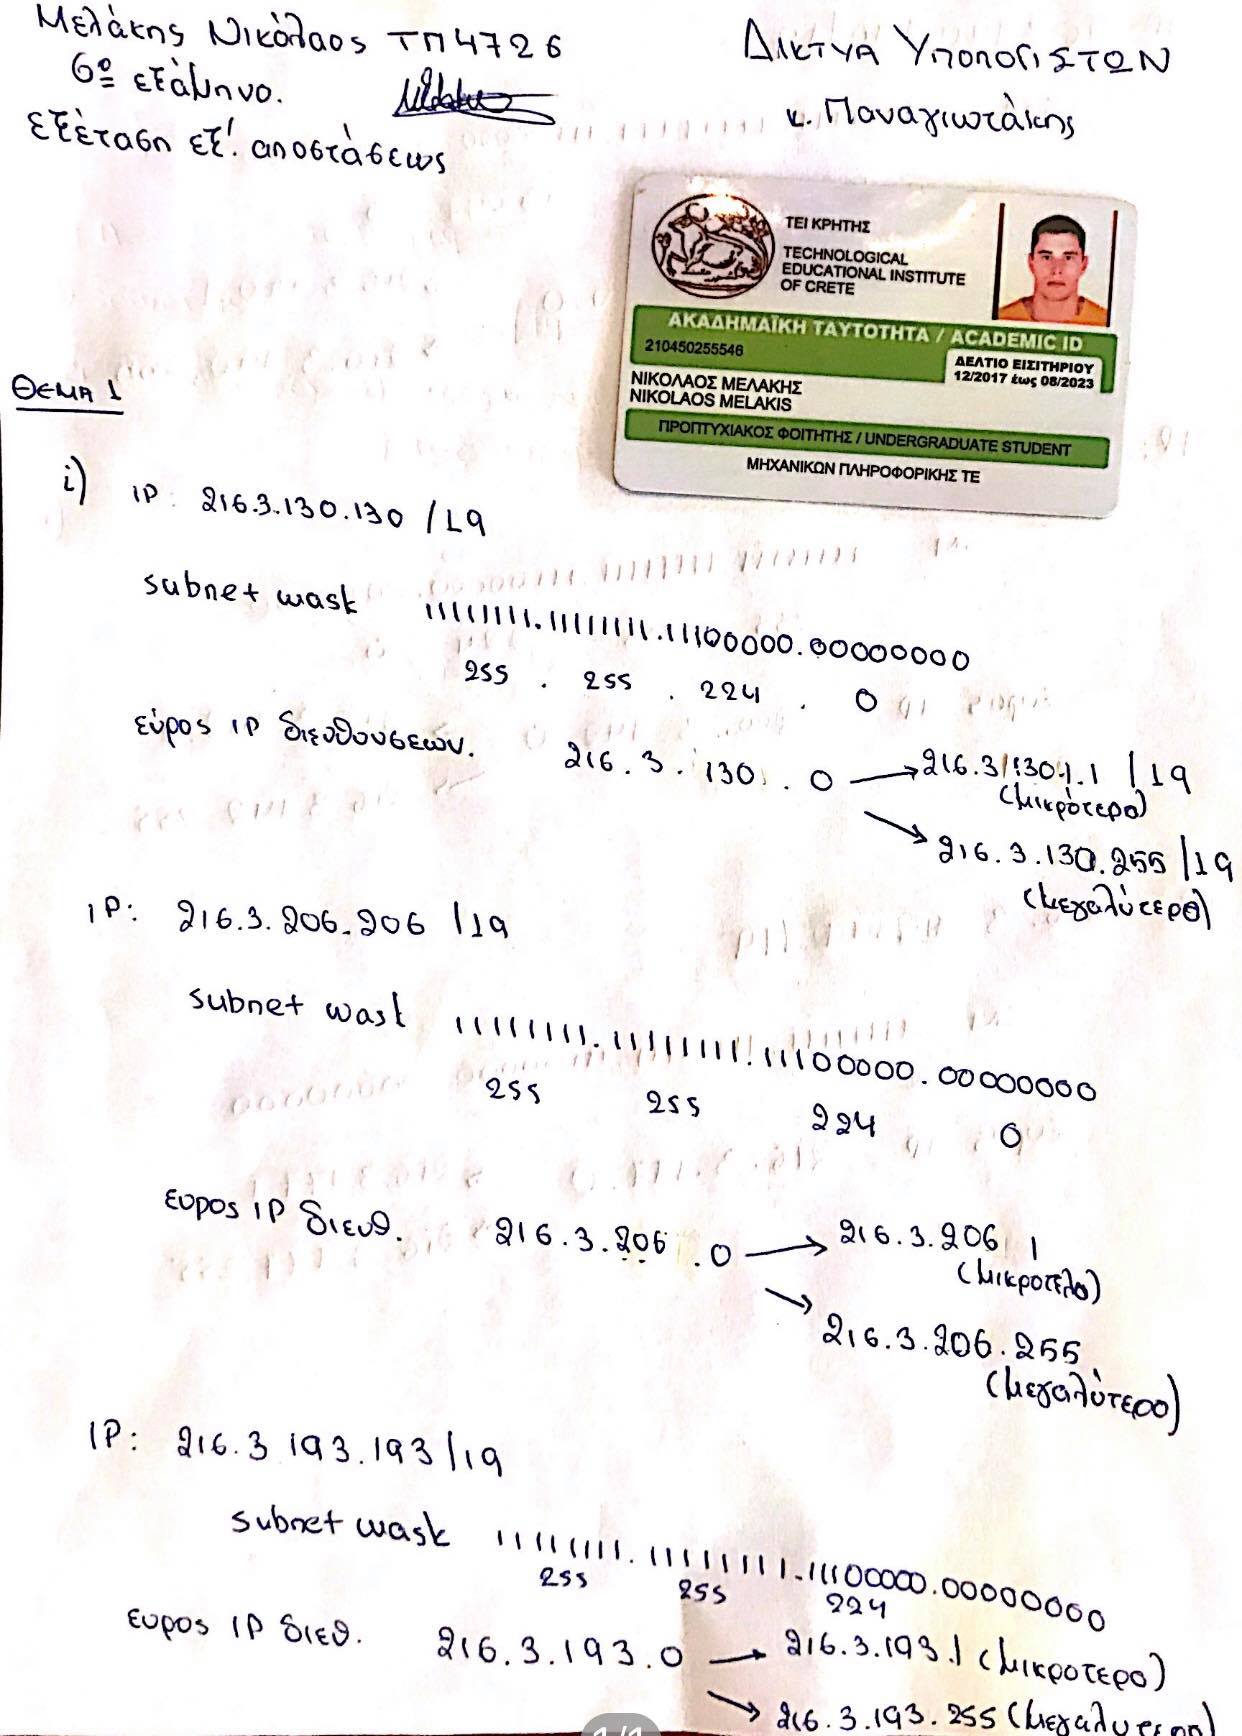 Μελάκης Νικόλαος ΤΠ4726
6ο εξάμηνο.
εξέταση εξ' αποστάσεως
ΔΙΚΤΥΑ ΥΠΟΛΟΓΙΣΤΩΝ
κ. Παναγιωτάκης
ΤΕΙ ΚΡΗΤΗΣ
TECHNOLOGICAL
EDUCATIONAL INSTITUTE
OF CRETE
ΑΚΑΔΗΜΑΪΚΗ ΤΑΥΤΟΤΗΤΑ / ACADEMIC ID
210450255546
ΔΕΛΤΙΟ ΕΙΣΙΤΗΡΙΟΥ
12/2017 έως 08/2023
ΝΙΚΟΛΑΟΣ ΜΕΛΑΚΗΣ
NIKOLAOS MELAKIS
ΠΡΟΠΤΥΧΙΑΚΟΣ ΦΟΙΤΗΤΗΣ / UNDERGRADUATE STUDENT
ΜΗΧΑΝΙΚΩΝ ΠΛΗΡΟΦΟΡΙΚΗΣ ΤΕ
ΘΕΜΑ 1
i) IP: 216.3.130.130 /19
subnet mask 11111111.11111111.11100000.00000000
255 . 255 . 224 . 0
εύρος IP διευθούσεων. 216.3.130.0 → 216.3.130.1 /19
(μικρότερο)
→ 216.3.130.255 /19
(μεγαλύτερο)
IP: 216.3.206.206 /19
subnet mask 11111111.11111111.11100000.00000000
255 255 224 0
ευρος IP διευθ. 216.3.206.0 → 216.3.206 1
(μικροτερο)
→ 216.3.206.255
(μεγαλύτερο)
IP: 216.3 193.193/19
subnet mask 11111111.11111111.11100000.00000000
255 255 224
ευρος IP διευ. 216.3.193.0 → 216.3.193.1 (μικροτερο)
→ 216.3.193.255 (μεγαλυτερο)
1/1